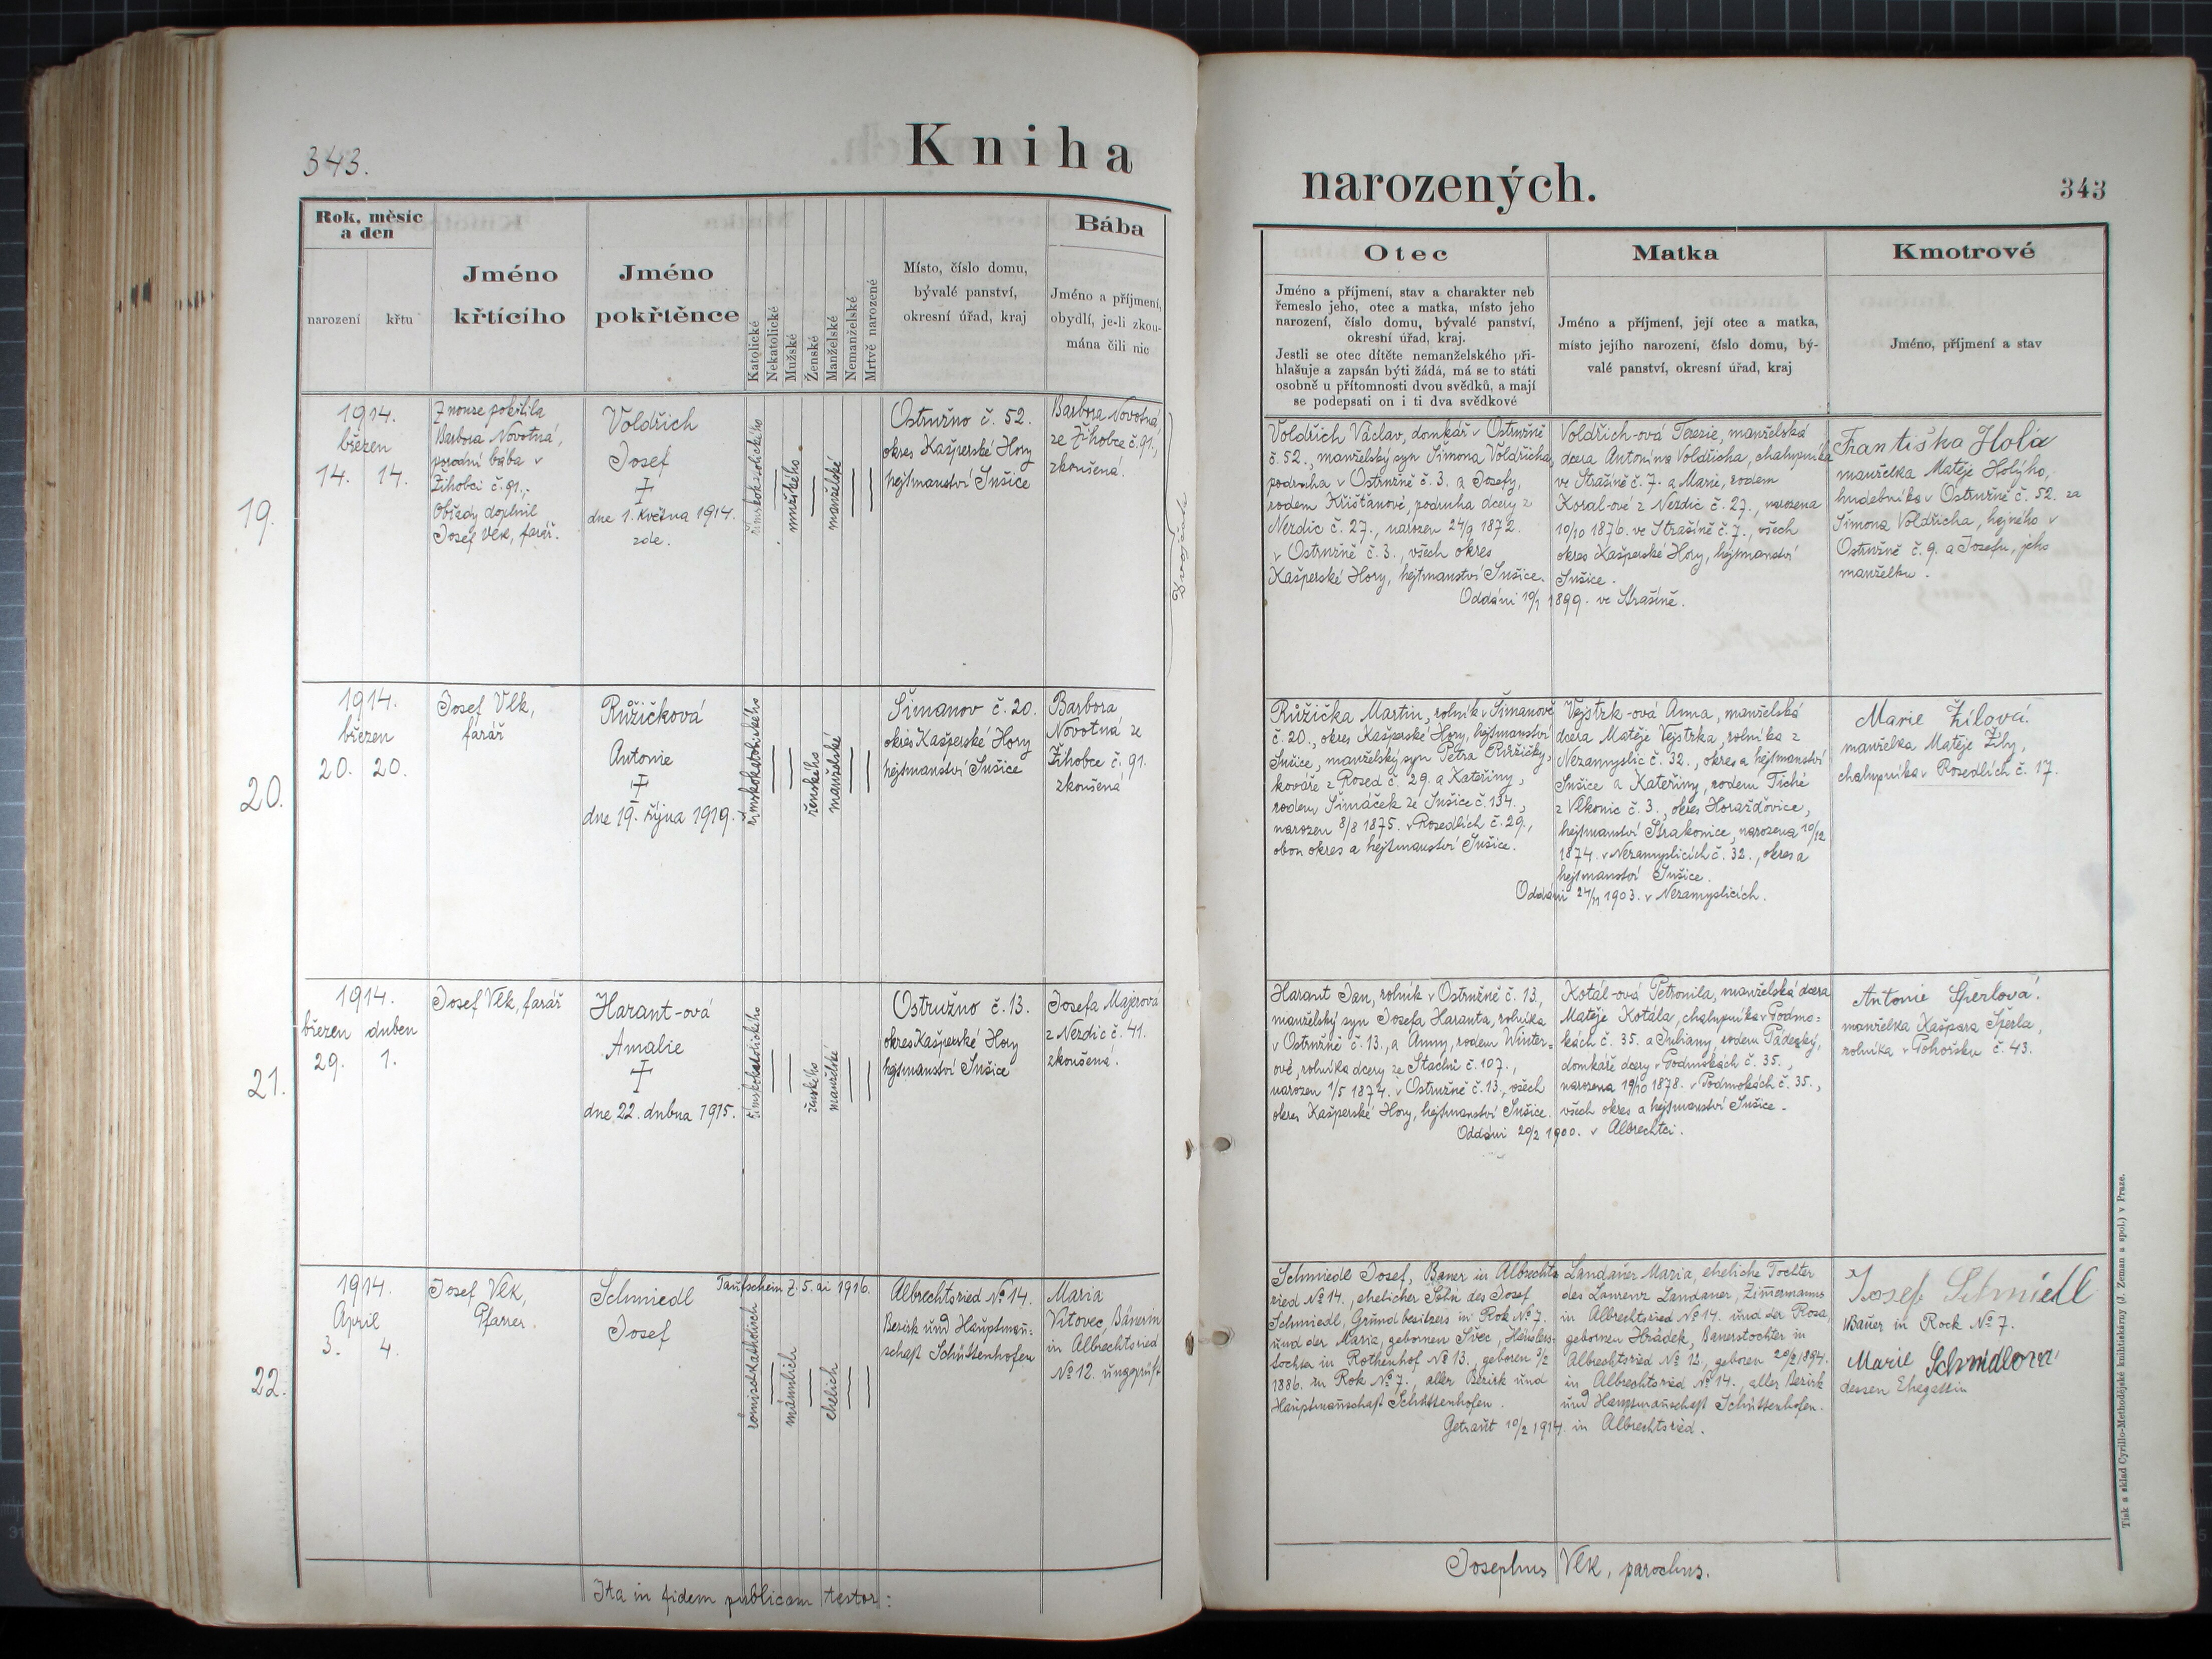 343.
Kniha
narozených.
343
Rok, měsíc
a den
narození
křtu
Jméno
křtícího
Jméno
pokřtěnce
Katolické
Nekatolické
Mužské
Ženské
Manželské
Nemanželské
Mrtvě narozené
Místo, číslo domu,
bývalé panství,
okresní úřad, kraj
Bába
Jméno a příjmení,
obydlí, je-li zkou-
mána čili nic
Otec
Jméno a příjmení, stav a charakter neb
řemeslo jeho, otec a matka, místo jeho
narození, číslo domu, bývalé panství,
okresní úřad, kraj.
Jestli se otec dítěte nemanželského při-
hlašuje a zapsán býti žádá, má se to státi
osobně u přítomnosti dvou svědků, a mají
se podepsati on i ti dva svědkové
Matka
Jméno a příjmení, její otec a matka,
místo jejího narození, číslo domu, bý-
valé panství, okresní úřad, kraj
Kmotrové
Jméno, příjmení a stav
19.
1914.
březen
14. 14.
Z nouze pokřtila
Barbora Novotná,
porodní bába v
Žihobci č. 91.,
Obřady doplnil
Josef Vlk, farář.
Voldřich
Josef
†
dne 1. května 1914.
zde.
římskokatolického
mužského
manželské
Ostružno č. 52.
okres Kašperské Hory
hejtmanství Sušice
Barbora Novotná,
ze Žihobce č. 91.,
zkoušená.
Dvojčata
Voldřich Václav, domkář v Ostružně
č. 52., manželský syn Šimona Voldřicha,
podruha v Ostružně č. 3. a Josefy,
rodem Křišťanové, podruha dcery z
Nezdic č. 27., narozen 24/9 1872.
v Ostružně č. 3., všech okres
Kašperské Hory, hejtmanství Sušice.
Voldřich-ová Terezie, manželská
dcera Antonína Voldřicha, chalupníka
ve Strašíně č. 7. a Marie, rodem
Koral-ové z Nezdic č. 27., narozena
10/10 1876. ve Strašíně č. 7., všech
okres Kašperské Hory, hejtmanství
Sušice.
Oddáni 19/1 1899. ve Strašíně.
Františka Holá
manželka Matěje Holýho,
hudebníka v Ostružně č. 52. za
Šimona Voldřicha, hajného v
Ostružně č. 9. a Josefu, jeho
manželku.
20.
1914.
březen
20. 20.
Josef Vlk,
farář
Růžičková
Antonie
†
dne 19. října 1919.
římskokatolického
ženského
manželské
Šimanov č. 20.
okres Kašperské Hory
hejtmanství Sušice
Barbora
Novotná ze
Žihobce č. 91.
zkoušená
Růžička Martin, rolník v Šimanově
č. 20., okres Kašperské Hory, hejtmanství
Sušice, manželský syn Petra Růžičky,
kováře z Rosed č. 29. a Kateřiny,
rodem Šimáček ze Sušice č. 134.,
narozen 8/8 1875. v Rosedlích č. 29.,
obou okres a hejtmanství Sušice.
Vejstrk-ová Anna, manželská
dcera Matěje Vejstrka, rolníka z
Nezamyslic č. 32., okres a hejtmanství
Sušice a Kateřiny, rodem Tiché
z Vlkonic č. 3., okres Horažďovice,
hejtmanství Strakonice, narozena 10/12
1874. v Nezamyslicích č. 32., okres a
hejtmanství Sušice.
Oddáni 24/11 1903. v Nezamyslicích.
Marie Žílová.
manželka Matěje Žíly,
chalupníka v Rosedlích č. 17.
21.
1914.
březen duben
29. 1.
Josef Vlk, farář
Harant-ová
Amalie
†
dne 22. dubna 1915.
římskokatolického
ženského
manželské
Ostružno č. 13.
okres Kašperské Hory
hejtmanství Sušice
Josefa Majerová
z Nezdic č. 41.
zkoušená.
Harant Jan, rolník v Ostružně č. 13.,
manželský syn Josefa Haranta, rolníka
v Ostružně č. 13., a Anny, rodem Winter-
ové, rolníka dcery ze Stachů č. 107.,
narozen 1/5 1874. v Ostružně č. 13., všech
okres Kašperské Hory, hejtmanství Sušice.
Kotál-ová Petronila, manželská dcera
Matěje Kotála, chalupníka v Podmo=
kách č. 35. a Juliany, rodem Pádecký,
domkáře dcery v Podmokách č. 35.,
narozena 19/10 1878. v Podmokách č. 35.,
všech okres a hejtmanství Sušice.
Oddáni 20/2 1900. v Albrechtci.
Antonie Šperlová.
manželka Kašpara Šperla,
rolníka v Pohorsku č. 43.
22.
1914.
April
3. 4.
Josef Vlk,
Pfarrer.
Taufschein Z. 5. ai 1916.
Schmiedl
Josef
römischkatholisch
männlich
ehelich
Albrechtsried No 14.
Bezirk und Hauptman̄=
schaft Schüttenhofen
Maria
Vitovec, Bäuerin
in Albrechtsried
No 12. ungeprüft
Schmiedl Josef, Bauer in Albrechts
ried No 14., ehelicher Sohn des Josef
Schmiedl, Grundbesitzers in Rok No 7.
und der Maria, gebornen Švec, Häuslers-
tochter in Rothenhof No 13., geboren 3/2
1886. in Rok No 7., aller Bezirk und
Hauptman̄schaft Schüttenhofen.
Landauer Maria, eheliche Tochter
des Laurenz Landauer, Zimmermanns
in Albrechtsried No 14. und der Rosa,
gebornen Hrádek, Bauerstochter in
Albrechtsried No 12., geboren 20/2 1894.
in Albrechtsried No 14., aller Bezirk
und Hauptman̄schaft Schüttenhofen.
Getraut 10/2 1914. in Albrechtsried.
Josef Schmiedl
Bauer in Rock No 7.
Marie Schmidlová
dessen Ehegattin
Ita in fidem publicam testor:
Josephus Vlk, parochus.
Tisk a sklad Cyrillo-Methodějské knihtiskárny (J. Zeman a spol.) v Praze.